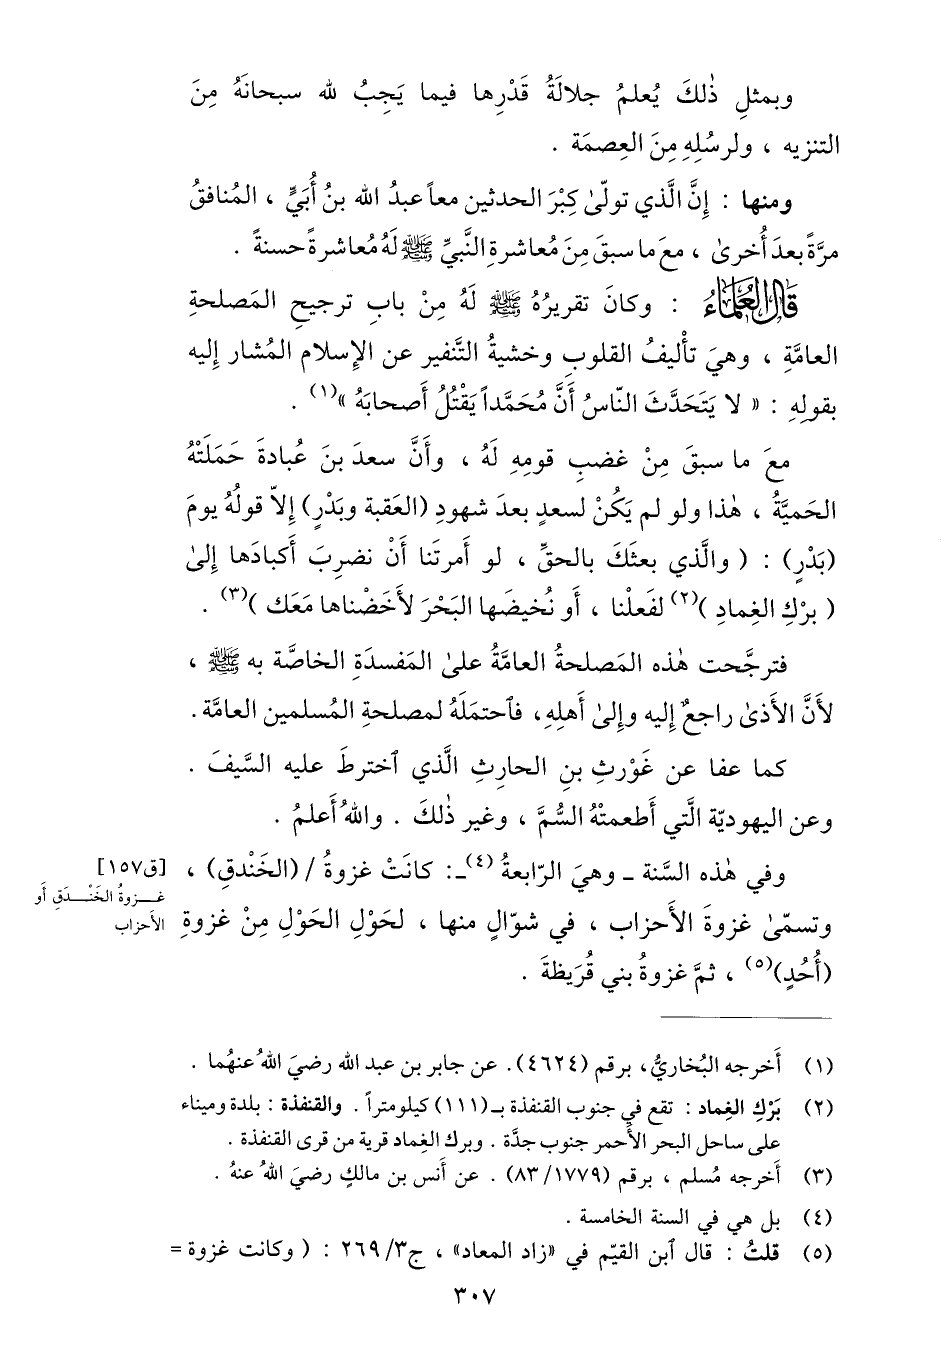 وبمثلِ ذٰلكَ يُعلمُ جلالةُ قَدْرِها فيما يَجِبُ لله سبحانَهُ مِنَ
التنزيه ، ولرسُلِهِ مِنَ العِصمَة .
ومنها : إنَّ الَّذي تولّىٰ كِبْرَ الحدثين معاً عبدُ الله بنُ أُبَيٍّ ، المُنافقُ
مرَّةً بعدَ أُخرىٰ ، معَ ما سبقَ مِنَ مُعاشرةِ النَّبيِّ ﷺ لَهُ مُعاشرةً حسنةً .
قَالَ العُلَمَاءُ : وكانَ تقريرُهُ ﷺ لَهُ مِنْ بابِ ترجيحِ المَصلحةِ
العامَّةِ ، وهيَ تأْليفُ القلوبِ وخشيةُ التَّنفير عن الإسلام المُشار إليه
بقولِهِ : « لا يَتَحَدَّث النّاسُ أَنَّ مُحَمَّداً يَقْتُلُ أَصحابَهُ »(١) .
معَ ما سبقَ مِنْ غضبِ قومِهِ لَهُ ، وأَنَّ سعدَ بنَ عُبادةَ حَمَلَتْهُ
الحَميَّةُ ، هٰذا ولو لم يَكُنْ لسعدٍ بعدَ شهودِ (العَقبة وبَدْرٍ) إلاّ قولُهُ يومَ
(بَدْرٍ) : ( والَّذي بعثَكَ بالحقِّ ، لو أَمرتَنا أَنْ نضرِبَ أَكبادَها إلىٰ
( برْكِ الغِمادِ )(٢) لفَعلْنا ، أَو نُخيضَها البَحْرَ لأَخَضْناها مَعَك )(٣) .
فترجَّحت هٰذه المَصلحةُ العامَّةُ علىٰ المَفسدَةِ الخاصَّة به ﷺ ،
لأَنَّ الأَذىٰ راجعٌ إليه وإلىٰ أَهلِهِ، فٱحتمَلَهُ لمصلحةِ المُسلمين العامَّة .
كما عفا عن غَوْرثِ بنِ الحارثِ الَّذي ٱخترطَ عليه السَّيفَ .
وعن اليهوديّة الَّتي أَطعمتْهُ السُّمَّ ، وغير ذٰلكَ . واللهُ أَعلمُ .
وفي هٰذه السَّنة ـ وهيَ الرّابعةُ (٤)ـ: كانَتْ غزوةُ / (الخَنْدقِ) ،
[ق١٥٧]
غــزوةُ الخَنْــدَقِ أو
الأَحزاب
وتسمّىٰ غزوةَ الأَحزاب ، في شوّالٍ منها ، لحَوْلِ الحَوْلِ مِنْ غزوةِ
(أُحُدٍ)(٥) ، ثمَّ غزوةُ بني قُرَيظةَ .
(١) أَخرجه البُخاريُّ، برقم (٤٦٢٤). عن جابر بن عبد الله رضيَ اللهُ عنهُما .
(٢) بَرْكِ الغِماد : تقع في جنوب القنفذة بـ(١١١) كيلومتراً . والقنفذة : بلدة وميناء
على ساحل البحر الأَحمر جنوب جدَّة . وبرك الغِماد قرية من قرى القنفذة .
(٣) أَخرجه مُسلم ، برقم (١٧٧٩/ ٨٣) . عن أَنس بن مالكٍ رضيَ اللهُ عنهُ .
(٤) بل هي في السنة الخامسة .
(٥) قلتُ : قال ٱبن القيّم في «زاد المعاد» ، ج٣/ ٢٦٩ : ( وكانت غزوة =
٣٠٧